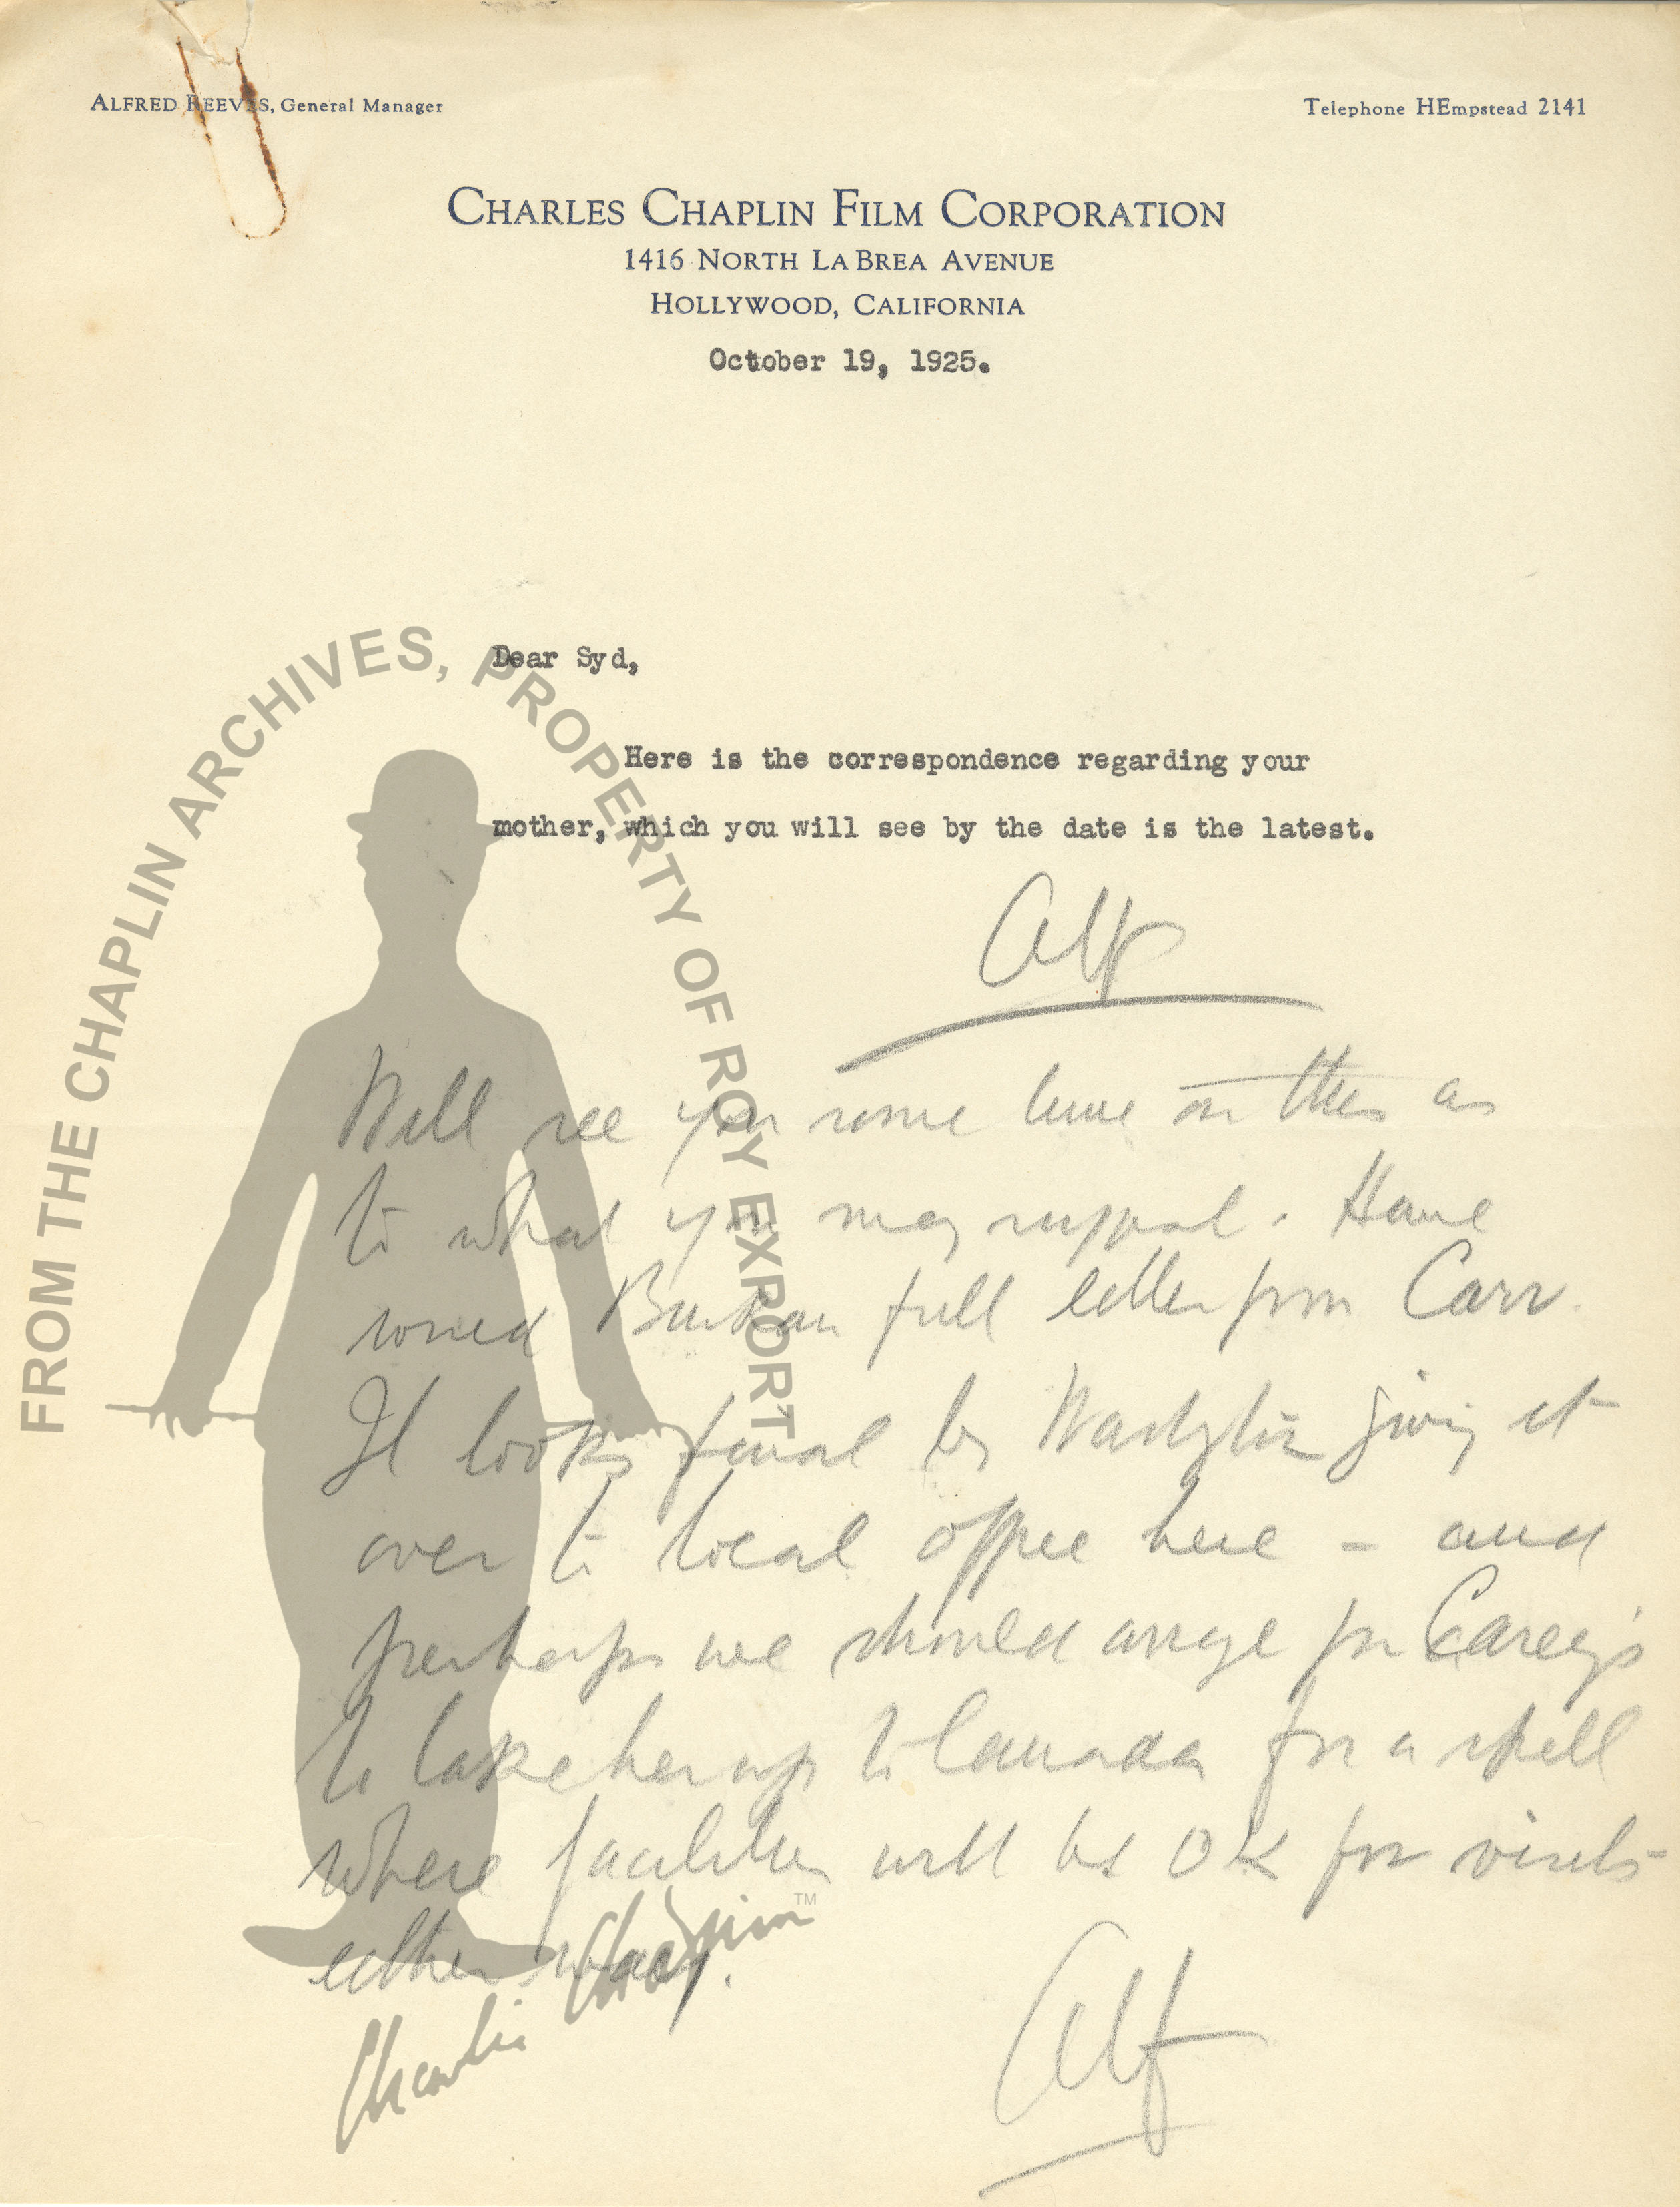 ALFRED REEVES, General Manager
Telephone HEmpstead 2141
CHARLES CHAPLIN FILM CORPORATION
1416 NORTH LA BREA AVENUE
HOLLYWOOD, CALIFORNIA
October 19, 1925.
Dear Syd,
Here is the correspondence regarding your
mother, which you will see by the date is the latest.
Alf
Will see you some time on this as
to what you may suggest. Have
wired Burkan full letter from Carr.
It looks final by Washgtn giving it
over to local office here - and
perhaps we should arrange for Careys
to take her up to Canada for a spell
where facilities will be OK for visits
either way.
Alf
FROM THE CHAPLIN ARCHIVES, PROPERTY OF ROY EXPORT
Charlie Chaplin TM